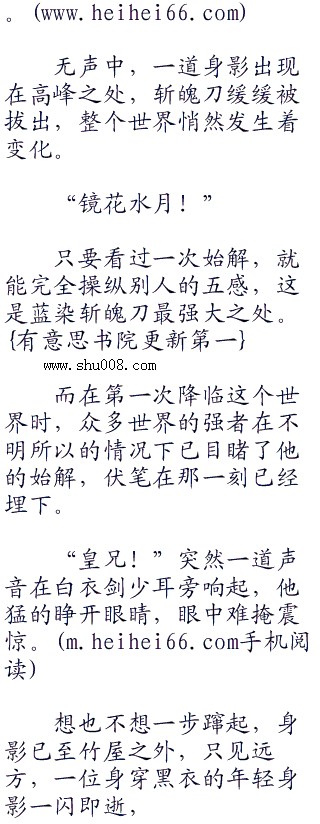 。(www.heihei66.com)
无声中，一道身影出现
在高峰之处，斩魄刀缓缓被
拔出，整个世界悄然发生着
变化。
“镜花水月！”
只要看过一次始解，就
能完全操纵别人的五感，这
是蓝染斩魄刀最强大之处。
{有意思书院更新第一}
www.shu008.com
而在第一次降临这个世
界时，众多世界的强者在不
明所以的情况下已目睹了他
的始解，伏笔在那一刻已经
埋下。
“皇兄！”突然一道声
音在白衣剑少耳旁响起，他
猛的睁开眼睛，眼中难掩震
惊。(m.heihei66.com手机阅
读)
想也不想一步蹿起，身
影已至竹屋之外，只见远
方，一位身穿黑衣的年轻身
影一闪即逝，